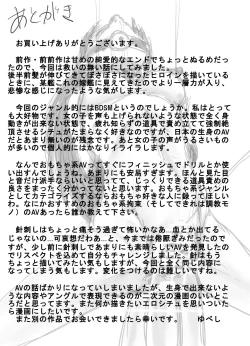 あとがき
お買い上げありがとうございます。
前作・前前作は甘めの純愛的なエンドでちょっとぬるめだっ
たので、今回は救いの無い話にしてみました。
後半前髪が伸びてきてぼさぼさになったヒロインを描いている
ときに、某艦これの綾波に見えてきたのでより一層力が入り、
悲惨な感じになったような気がします。
今回のジャンル的にはBDSMというのでしょうか。私はとって
も大好物です。女の子を声も上げられないような状態で全く身
動きが出来ない状態で、疲れ知らずの道具で責め立てて強制絶
頂させるシチュがたまらなく好きなのですが、日本の生身のAV
だとあまり無いのが残念です。あと女の子の声がうるさいもの
が多いので個人的にはかなりイライラします。
なんでおもちゃ系AVってすぐにフィニッシュでドリルとか使
い出すんでしょうね。あまりにも安易すぎます。ほんと見た目
と音だけ派手ならいいと思って、じっくりできる道具責めの
良さをまったく分かってないと思います。おもちゃ系ジャンル
にカテゴライズするならおもちゃ好きな人に撮ってほしい
わ。なにかおすすめのおもちゃ系拘束(そしてできれば調教モ
ノ)のAVあったら誰か教えて下さい。
針刺しはちょっと痛そう過ぎて怖いかなあ…血とか出し
じゃないの…可哀想だわぁ…と、今までは脊髄拒みだったので
すが、少し前に針刺してあまりにも素晴らしいAVを発見したの
でリスペクトを込めて自分もチャレンジしました。針はもう
ちょっと描いてみたい気もしますが、今回と全く同じ内容に
なってしまう気もします。変化をつけるのは難しいですね。
AVの話ばかりになっていしまいましたが、生身で出来ないよ
うな内容やアングルで表現できるのが二次元の漫画のいいとこ
ろだと思ってます。また何かしたいエロシチュを思いついたら
漫画にしたいです。
また別の作品でお会いできましたら幸いです。　ゆべし